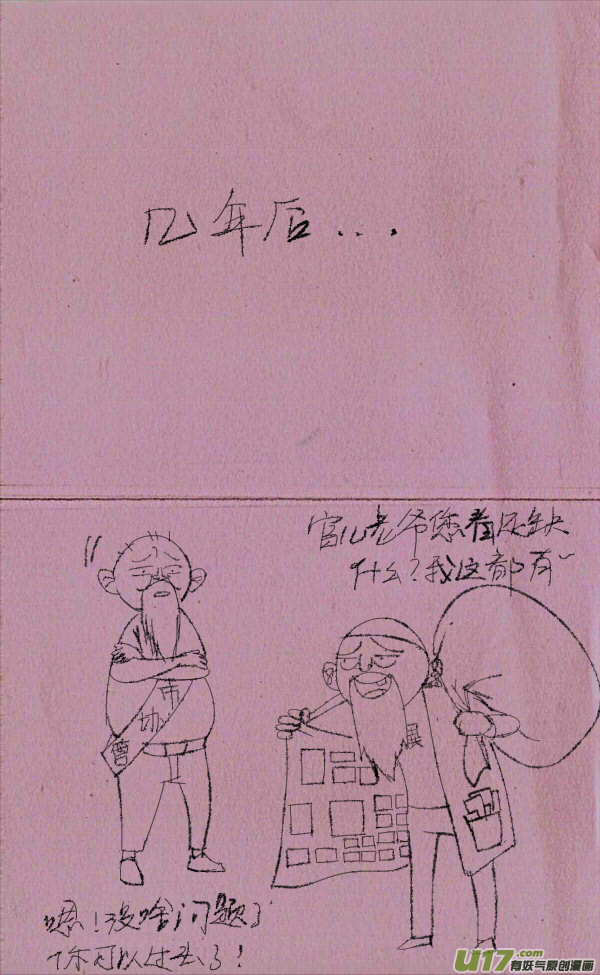 几年后...
官儿老爷您看还缺
什么?我这都有~
市
协
管
展
嗯!没啥问题了
你可以过去了!
U17.com
有妖气原创漫画